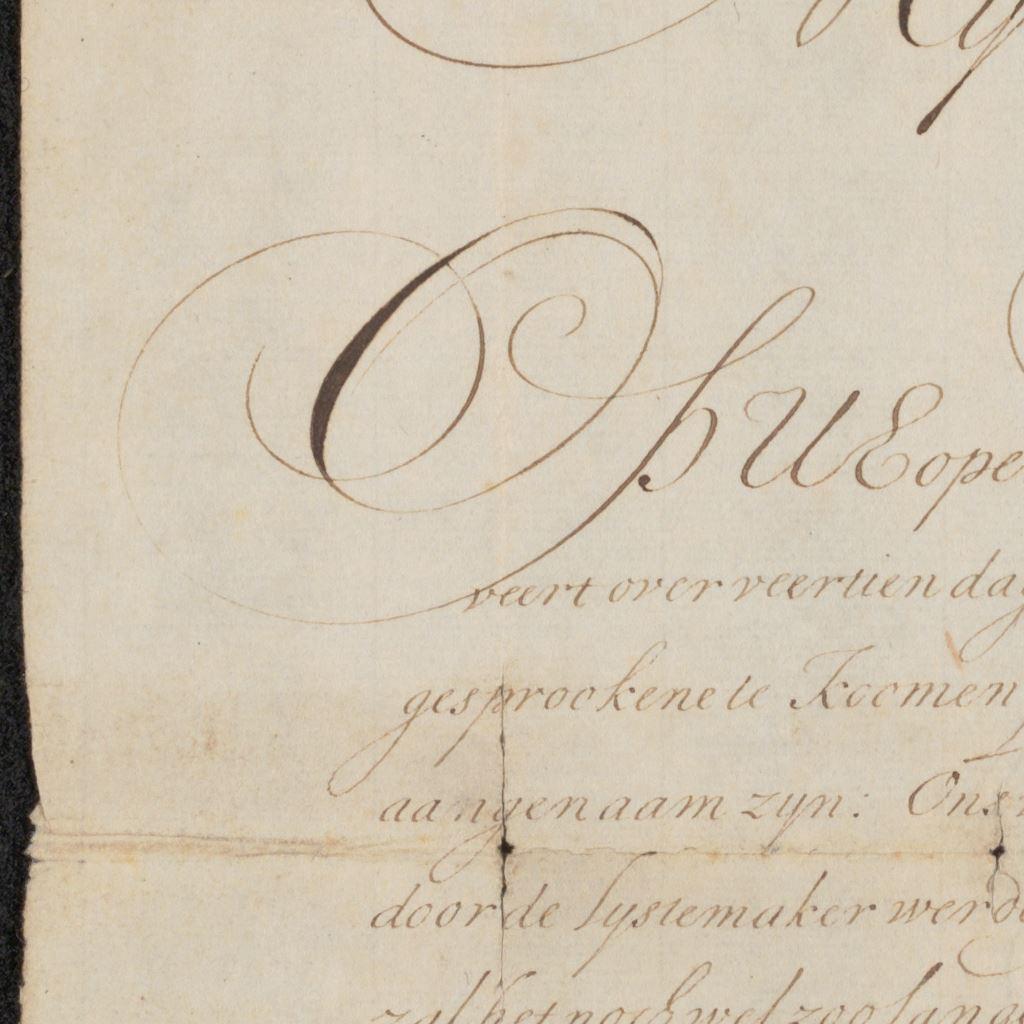 Op UE ope
veert over veertien dag
gesprookene te Koomen
aangenaam zyn: Ons
door de lystemaker werde
zal het noch wel zoo lange